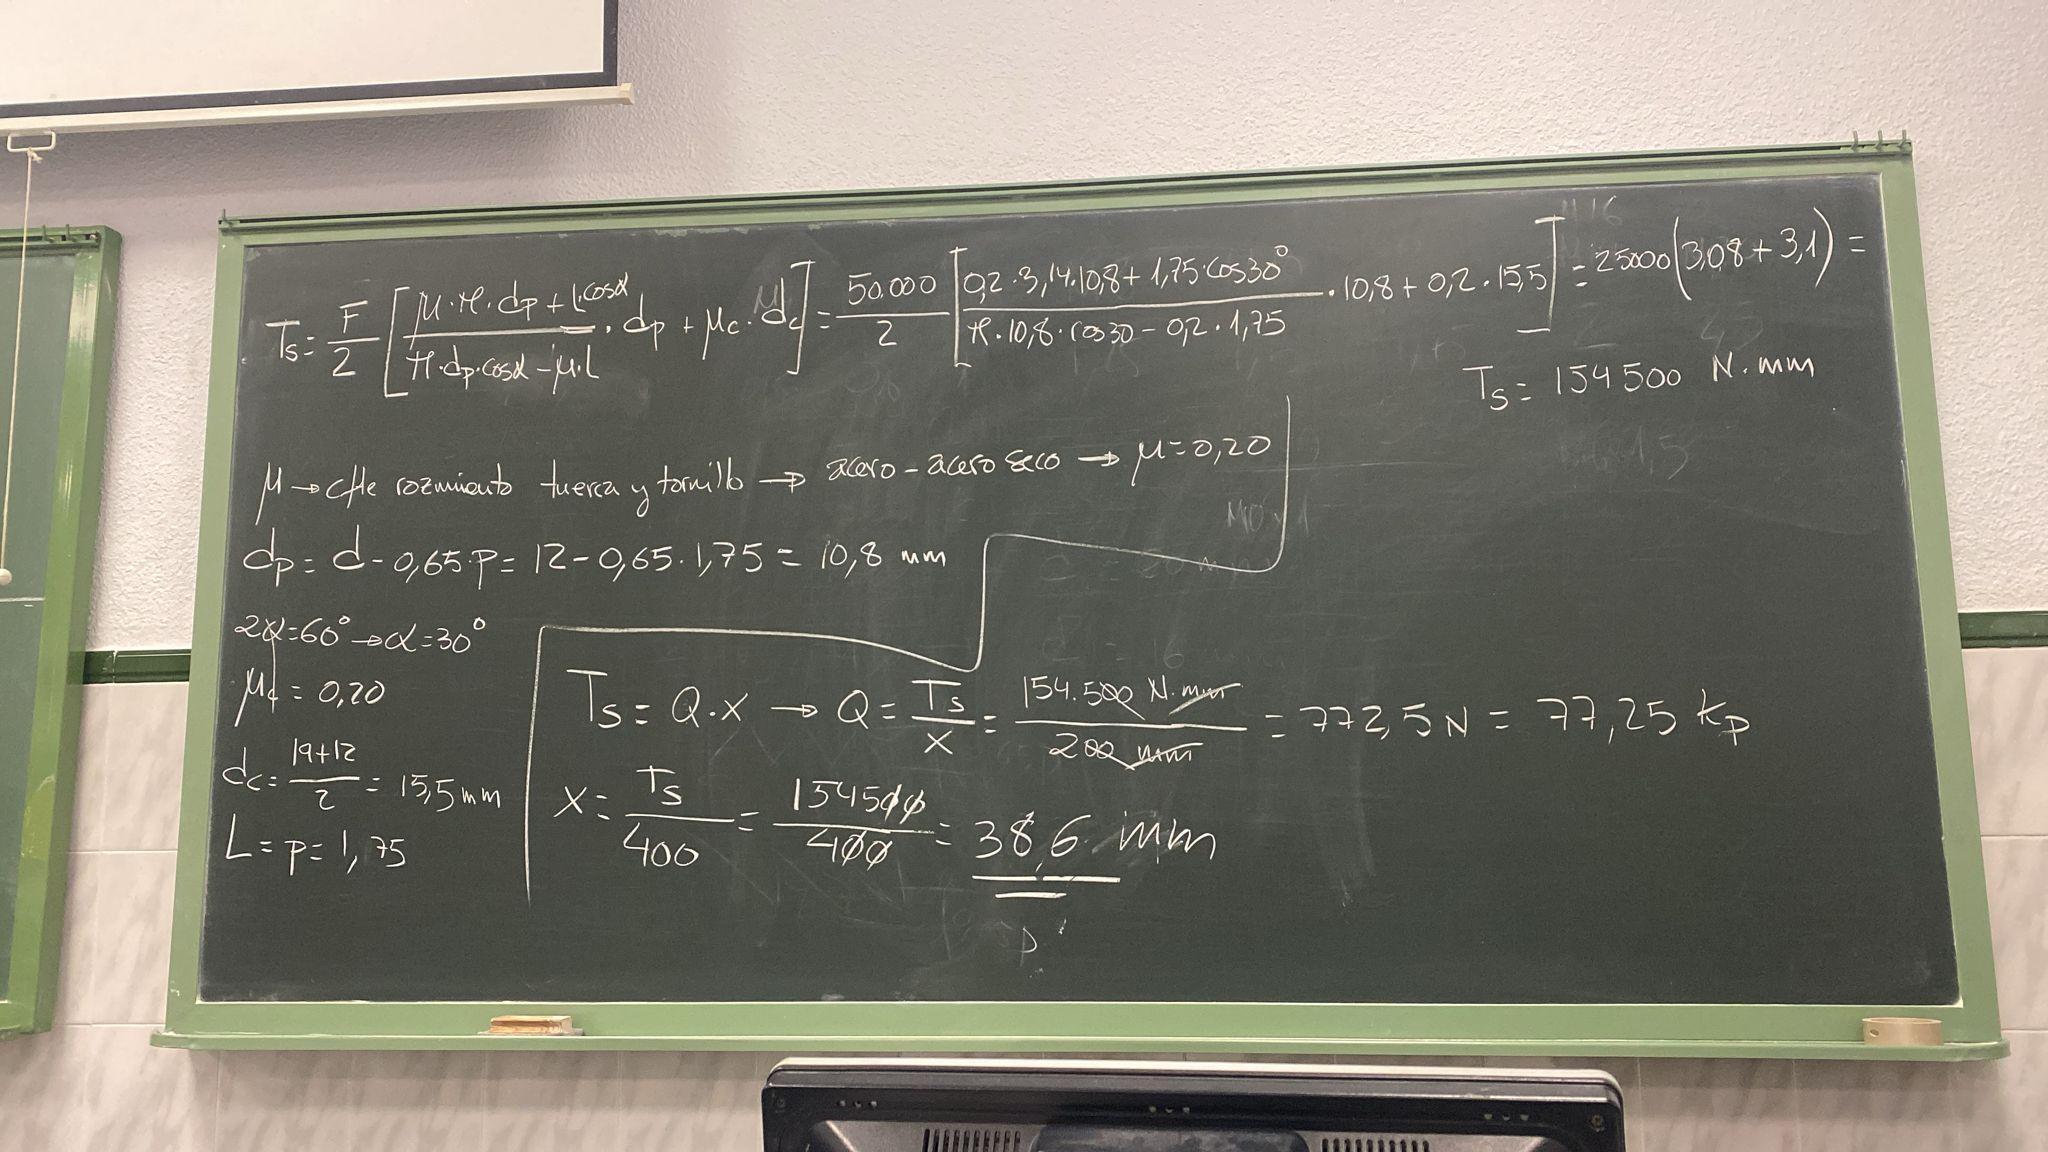 Ts = F/2 [ (μ·π·dp + L·cosα)/(π·dp·cosα - μ·L) · dp + μc · dc ] = 50.000/2 [ (0,2·3,14·10,8 + 1,75·cos30°)/(π·10,8·cos30 - 0,2·1,75) · 10,8 + 0,2 · 15,5 ] = 25000(3,08 + 3,1) =
Ts = 154500 N·mm
μ → cfte rozmiento tuerca y tornillo → acero - acero seco → μ = 0,20
dp = d - 0,65·p = 12 - 0,65·1,75 = 10,8 mm
2α = 60° → α = 30°
μc = 0,20
dc = (19+12)/2 = 15,5 mm
L = p = 1,75
Ts = Q·x → Q = Ts/x = 154.500 N·mm/200 mm = 772,5 N = 77,25 kp
x = Ts/400 = 154500/400 = 38,6 mm